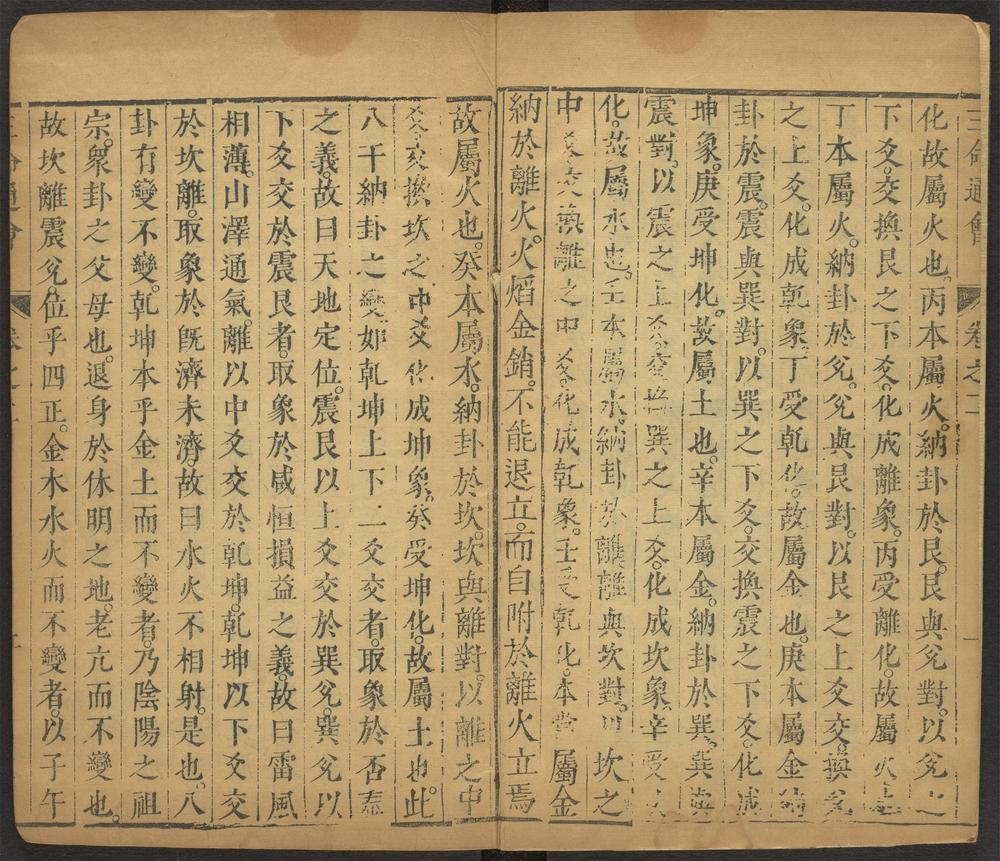 三命通會 卷之二 一
化故屬火也。丙本屬火。納卦於艮。艮與兊對。以兊之
下爻。交換艮之下爻。化成離象。丙受離化。故屬火
丁本屬火。納卦於兊。兊與艮對。以艮之上爻交。換兊
之上爻。化成乾象。丁受乾化。故屬金也。庚本屬金納
卦於震。震與巽對。以巽之下爻。交換震之下爻。化成
坤象。庚受坤化。故屬土也。辛本屬金。納卦於巽。巽與
震對。以震之上爻。交換巽之上爻。化成坎象辛受
化。故屬水也。壬本屬水。納卦於離離與坎對。以坎之
中爻交換離之中爻。化成乾象。壬受乾化。本當屬金
納於離火。火熖金銷。不能退立。而自附於離火立焉
故屬火也。癸本屬水。納卦於坎。坎與離對。以離之中
爻交換坎之中爻化成坤象。癸受坤化。故屬土也。此
八干納卦之變如乾坤上下二爻交者。取象於否泰
之義。故曰天地定位。震艮以上爻交於巽兊。巽兊以
下爻交於震艮者。取象於咸恒損益之義。故曰雷風
相薄。山澤通氣。離以中爻交於乾坤。乾坤以下爻交
於坎離。取象於旣濟未濟。故曰水火不相射。是也。八
卦有變不變。乾坤本乎金土而不變者。乃陰陽之祖
宗。衆卦之父母也。退身於休明之地。老亢而不變也。
故坎離震兊。位乎四正。金木水火而不變者。以子午